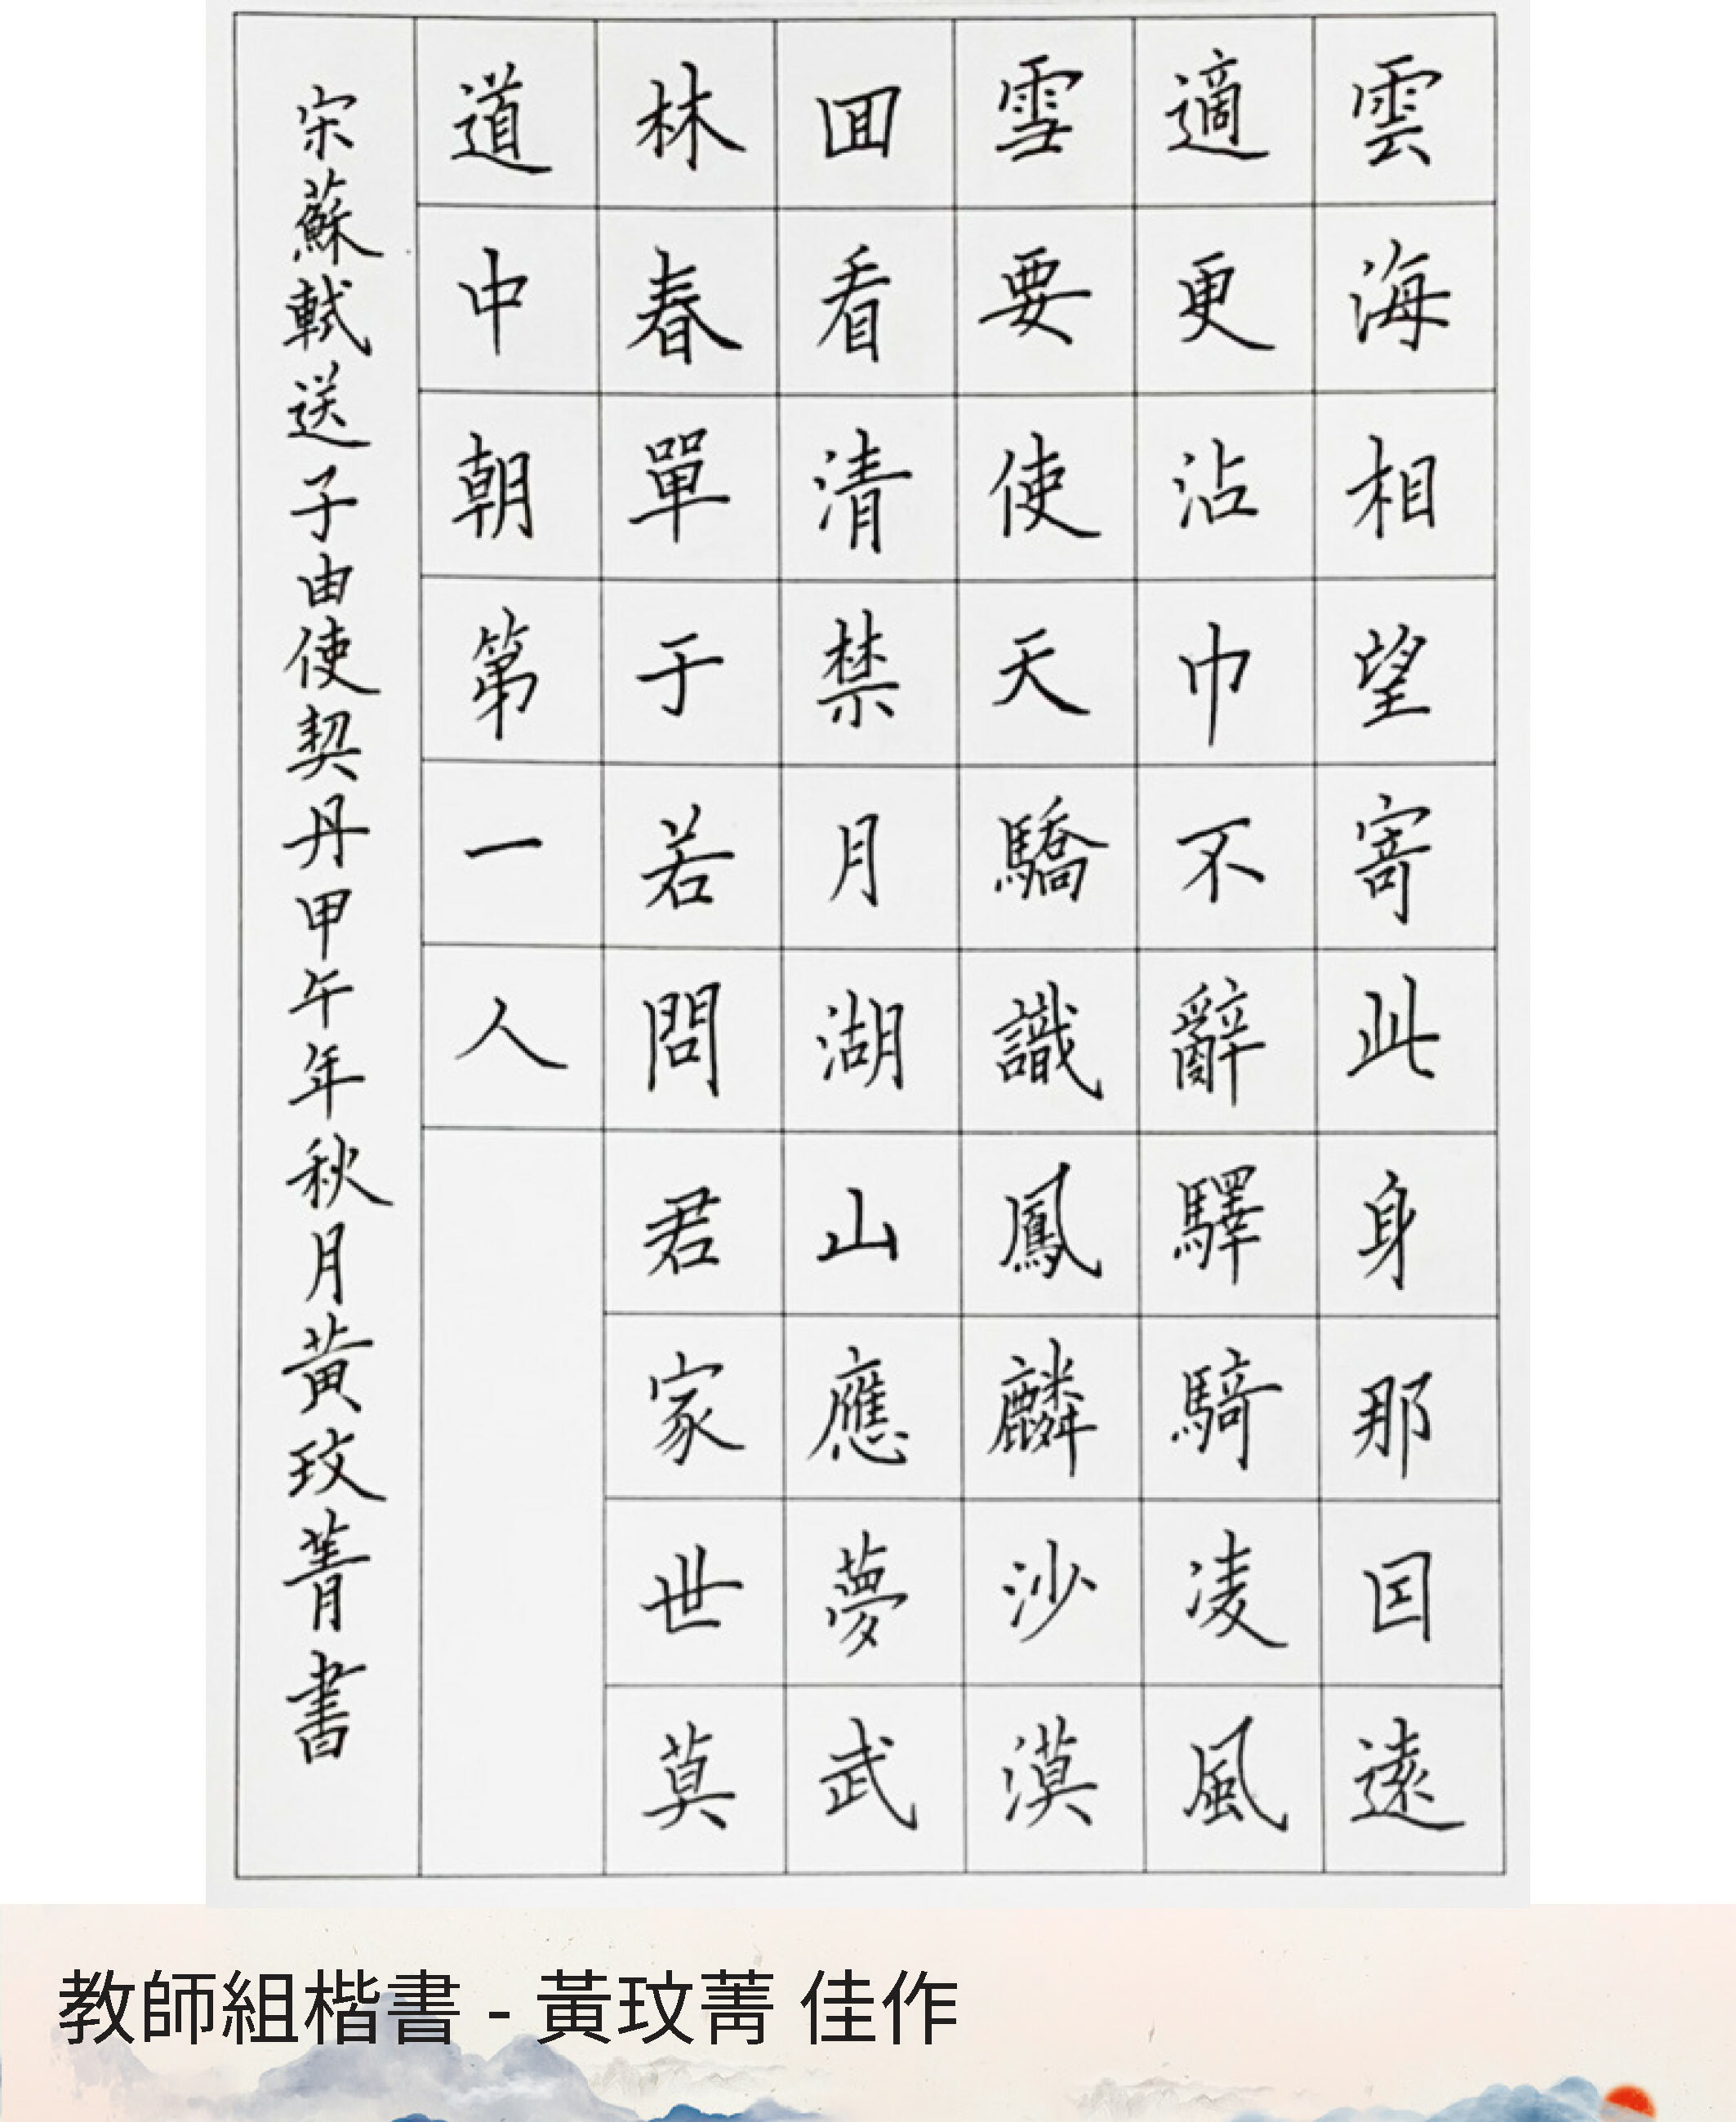 雲海相望寄此身那因遠
適更沾巾不辭驛騎凌風
雪要使天驕識鳳麟沙漠
回看清禁月湖山應夢武
林春單于若問君家世莫
道中朝第一人
宋蘇軾送子由使契丹甲午年秋月黃玟菁書
教師組楷書 - 黃玟菁 佳作